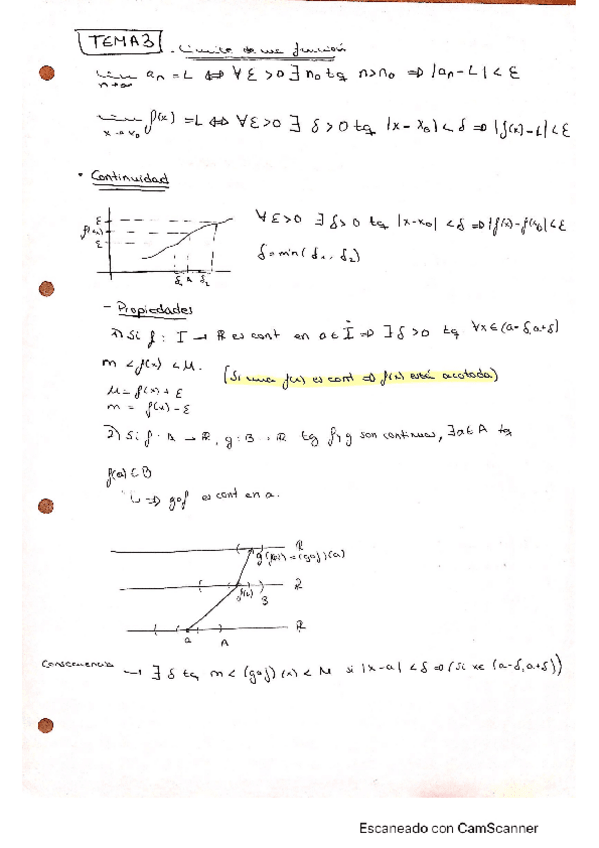 TEMA 3. Limite de una función
lim n→∞ an = L ⇔ ∀ε>0 ∃ n0 tq n>n0 ⇒ |an-L|<ε
lim x→x0 f(x) = L ⇔ ∀ε>0 ∃ δ>0 tq |x-x0|<δ ⇒ |f(x)-L|<ε
• Continuidad
ε
f(a)
ε
δ1 a δ2
∀ε>0 ∃δ>0 tq |x-x0|<δ ⇒ |f(x)-f(x0)|<ε
δ=min(δ1, δ2)
- Propiedades
1) Si f: I → R es cont en a∈I ⇒ ∃δ>0 tq ∀x∈(a-δ,a+δ)
m<f(x)<M. (Si una f(x) es cont ⇒ f(x) está acotada)
M=f(x)+ε
m=f(x)-ε
2) Si f: A → R, g: B → R tq f y g son continuas, ∃a∈A tq
f(a)⊂B
↳ ⇒ gof es cont en a.
R
g(f(a))=(gof)(a)
R
f(a) B
R
a A
Consecuencia → ∃δ tq m<(gof)(x)<M si |x-a|<δ ⇒ (si x∈(a-δ,a+δ))
Escaneado con CamScanner